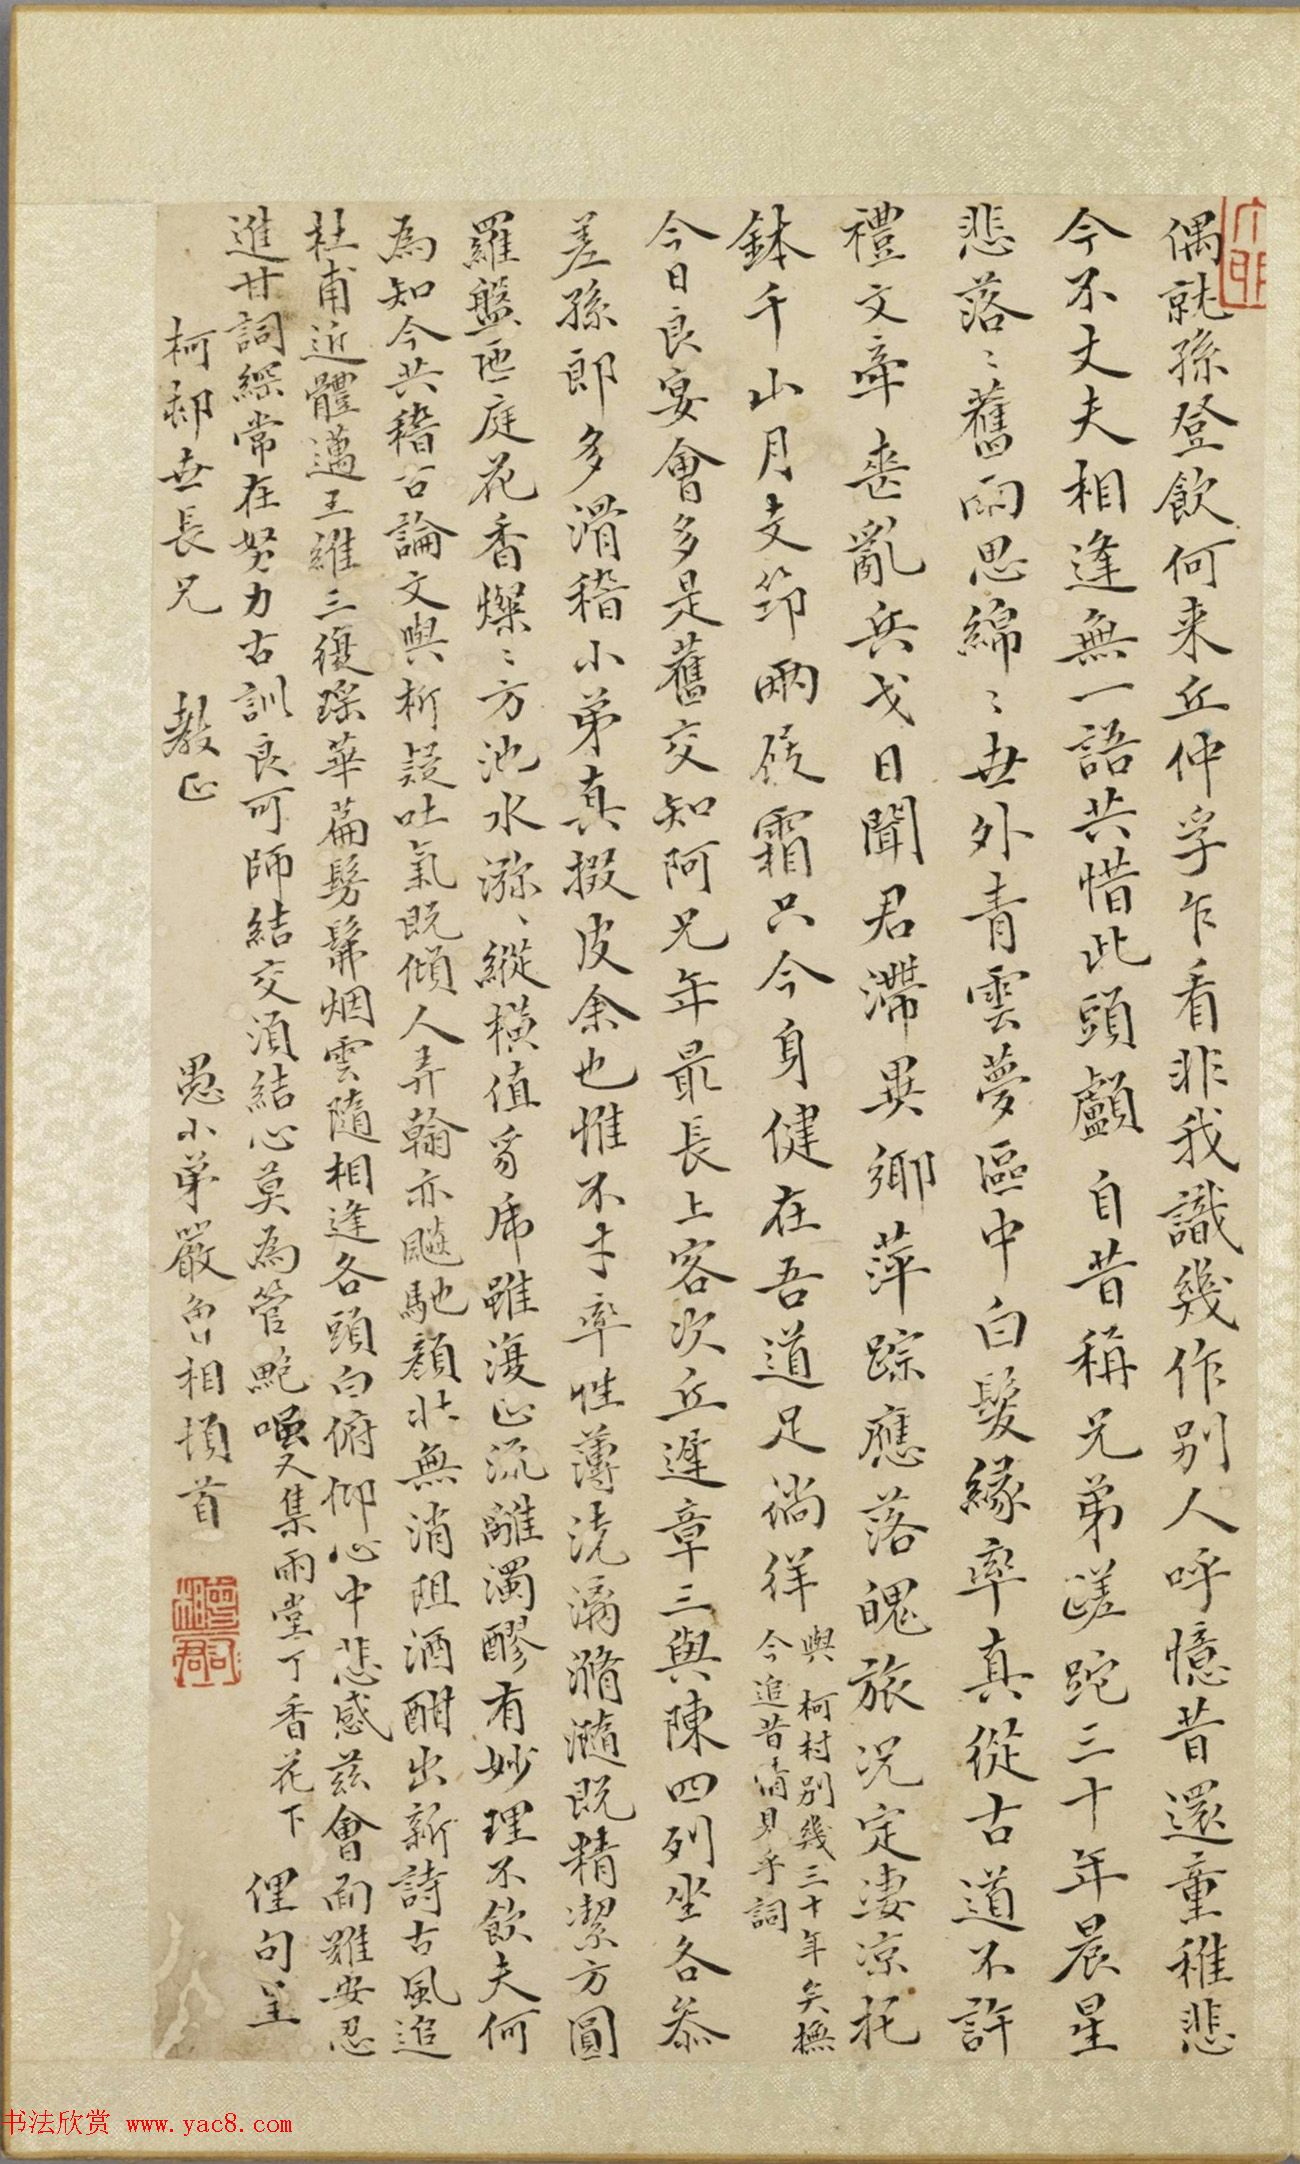 偶就孫登飲何来丘仲孚乍看非我識幾作別人呼憶昔還童稚悲
今不丈夫相逢無一語共惜此頭顱自昔稱兄弟蹉跎三十年晨星
悲落〻舊雨思綿〻世外青雲夢區中白髮緣率真從古道不許
禮文牽喪亂兵戈日聞君滯異鄉萍踪應落魄旅况定淒凉托
鉢千山月支笻兩屐霜只今身健在吾道足徜徉
與柯村別幾三十年矣撫
今追昔情見乎詞
今日良宴會多是舊交知阿兄年最長上客次丘遲章三與陳四列坐各忝
差孫郎多滑稽小弟真掇皮余也惟不才率性薄澆漓滫瀡既精潔方圓
羅盤匜庭花香燦〻方池水瀰〻縱橫值豸乕雖復正流離濁醪有妙理不飲夫何
為知今共稽古論文與析疑吐氣既傾人弄翰亦飈馳顏壯無消阻酒酣出新詩古風追
杜甫近體邁王維三復瑤華篇髣髴烟雲隨相逢各頭白俯仰心中悲感茲會面難安忍
進甘詞綵常在努力古訓良可師結交須結心莫為管鮑嗤
又集雨堂丁香花下
俚句呈
柯邨世長兄 教正 愚小弟嚴曾相頓首
書法欣赏 www.yac8.com